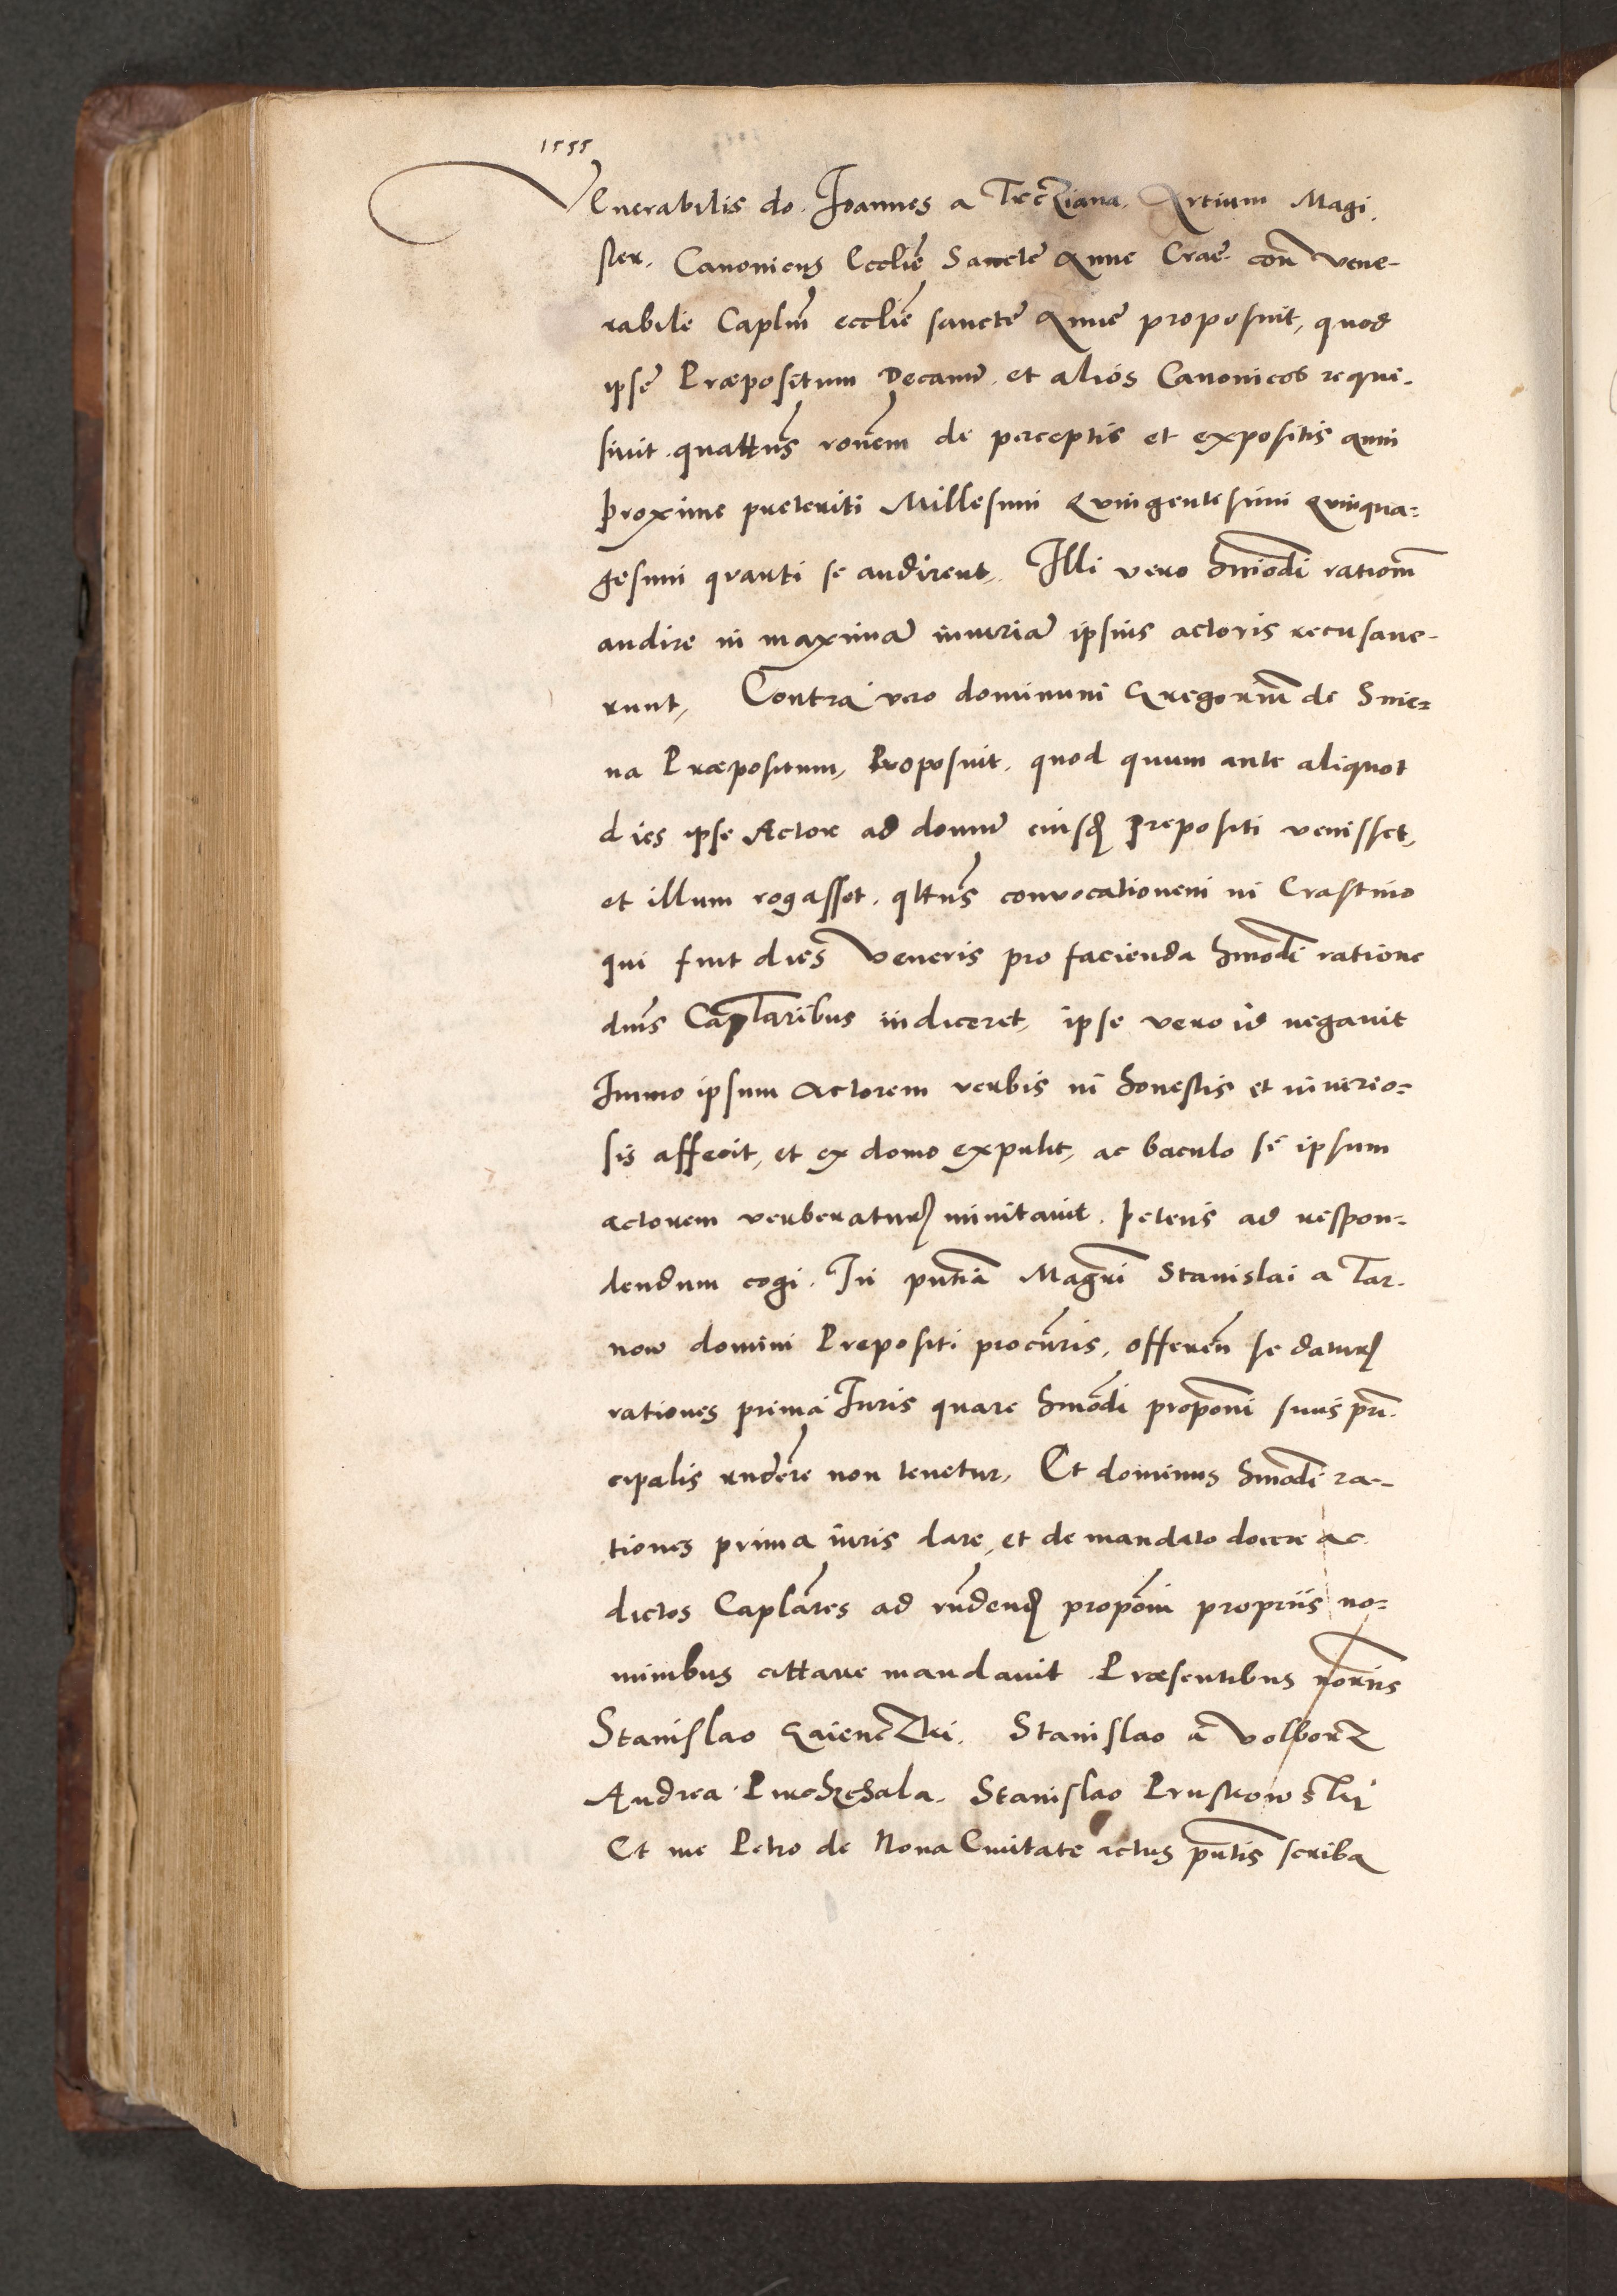 1555
Venerabilis do. Joannes a Trcziana. Artium Magi
ster. Canonicus Ecclie Sancte Anne Crac. con vene-
rabile Caplm ecclie sancte Anne proposuit, quod
ipse Præpositum Decanu. et aliós Canonicos requi-
sivit. quattus ronem de perceptis et expositis anni
proxime preteriti Millesimi Quingentesimi Quinqua=
gesimi quarti se audirent. Illi vero hmodi rationem
audire in maxima iniuria ipsius actoris recusave-
runt, Contra vero dominum Gregorium de Snie=
na Præpositum, Proposuit. quod quum ante aliquot
dies ipse Actor ad domu eiusd prepositi venisset,
et illum rogasset. qttus convocationem in Crastino
qui fuit dies Veneris pro facienda hmodi ratione
dnis Caplaribus indiceret, ipse vero id negavit
Immo ipsum Actorem verbis in honestis et iniurio=
sis affecit, et ex domo expulit, ac baculo se ipsum
actorem verberatur minitavit. petens ad respon=
dendum cogi. In pntia Magri Stanislai a Tar-
now domini Prepositi procuris, offeren se datur
rationes prima Juris quare hmodi proponi suus prin
cipalis rndere non tenetur, Et dominus hmodi ra-
tiones prima iuris dare, et de mandato docere ac
dictos Caplares ad rndend proponi propriis no=
minibus cittare mandavit. Præsentibus noriis
Stanislao Gaienczki. Stanislao a Volborz
Andrea Stanislao Pruskowski
Et me Petro de Nova Civitate actus pntis scriba